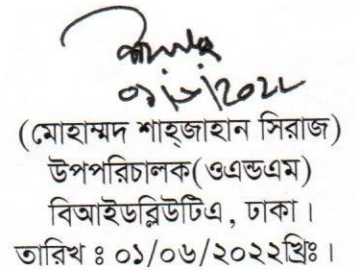 ০১/৬/২০২২
(মোহাম্মদ শাহ্জাহান সিরাজ)
উপপরিচালক(ওএন্ডএম)
বিআইডব্লিউটিএ, ঢাকা।
তারিখ ঃ ০১/০৬/২০২২খ্রিঃ।